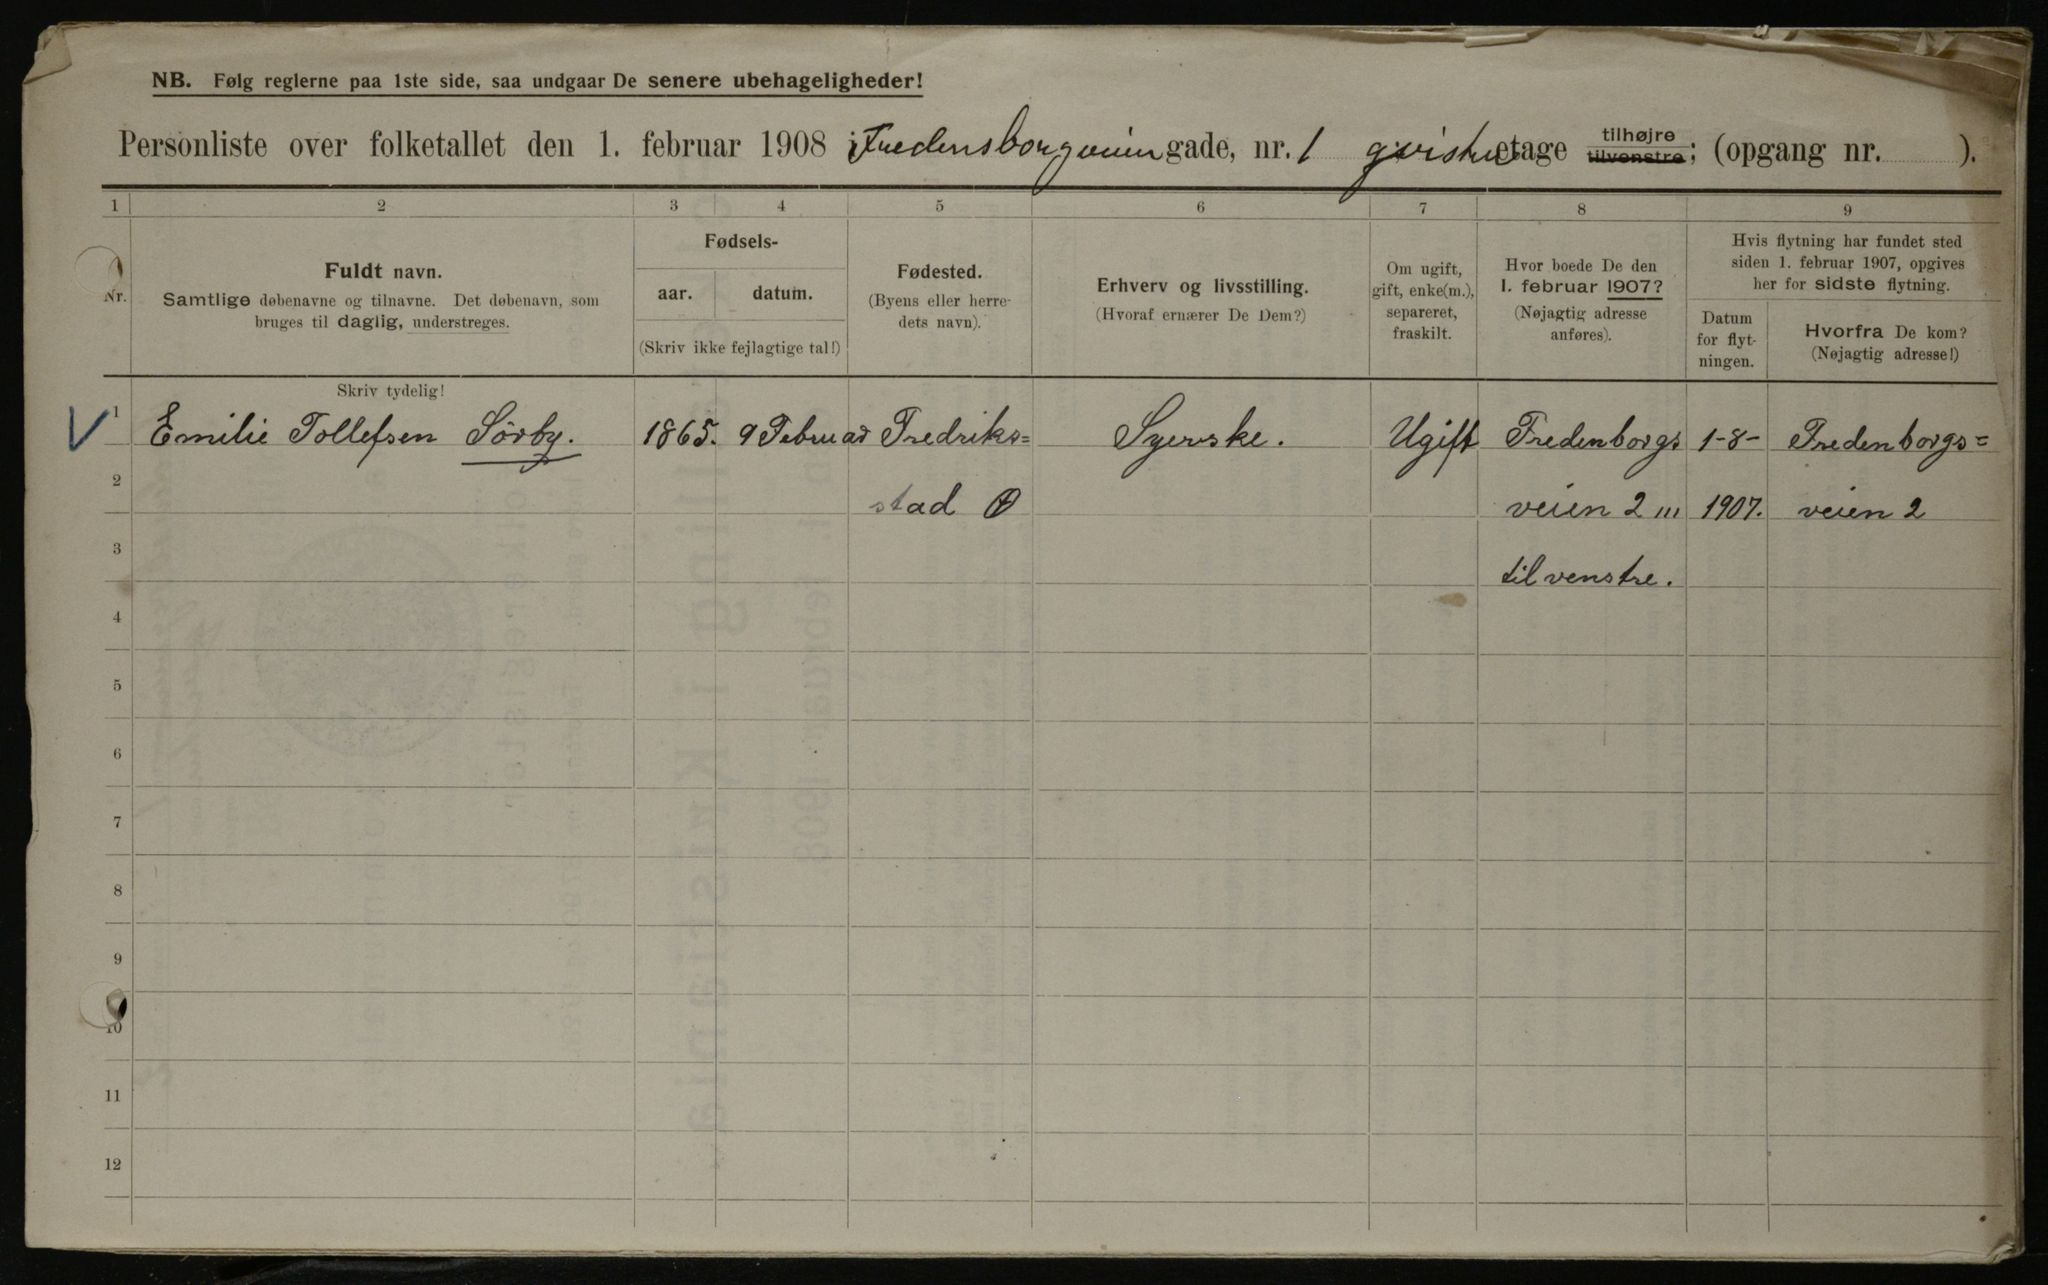 NB. Følg reglerne paa 1ste side, saa undgaar De senere ubehageligheder!
Personliste over folketallet den 1. februar 1908 i Fredensborgveien gade, nr. 1 qvistus etage tilhøjre tilvenstre; (opgang nr. ).
1 2 3 4 5 6 7 8 9
Nr.
Fuldt navn.
Samtlige døbenavne og tilnavne. Det døbenavn, som
bruges til daglig, understreges.
Skriv tydelig!
Fødsels-
aar. datum.
(Skriv ikke fejlagtige tal!)
Fødested.
(Byens eller herre-
dets navn).
Erhverv og livsstilling.
(Hvoraf ernærer De Dem?)
Om ugift,
gift, enke(m.),
separeret,
fraskilt.
Hvor boede De den
1. februar 1907?
(Nøjagtig adresse
anføres).
Hvis flytning har fundet sted
siden 1. februar 1907, opgives
her for sidste flytning.
Datum
for flyt-
ningen.
Hvorfra De kom?
(Nøjagtig adresse!)
V 1 Emilie Tollefsen Sörby. 1865. 9 Februar Fredriks= Syerske. Ugift Fredenborgs 1-8- Fredenborgs=
2 stad O veien 2 III 1907. veien 2
3 til venstre.
4
5
6
7
8
9
10
11
12